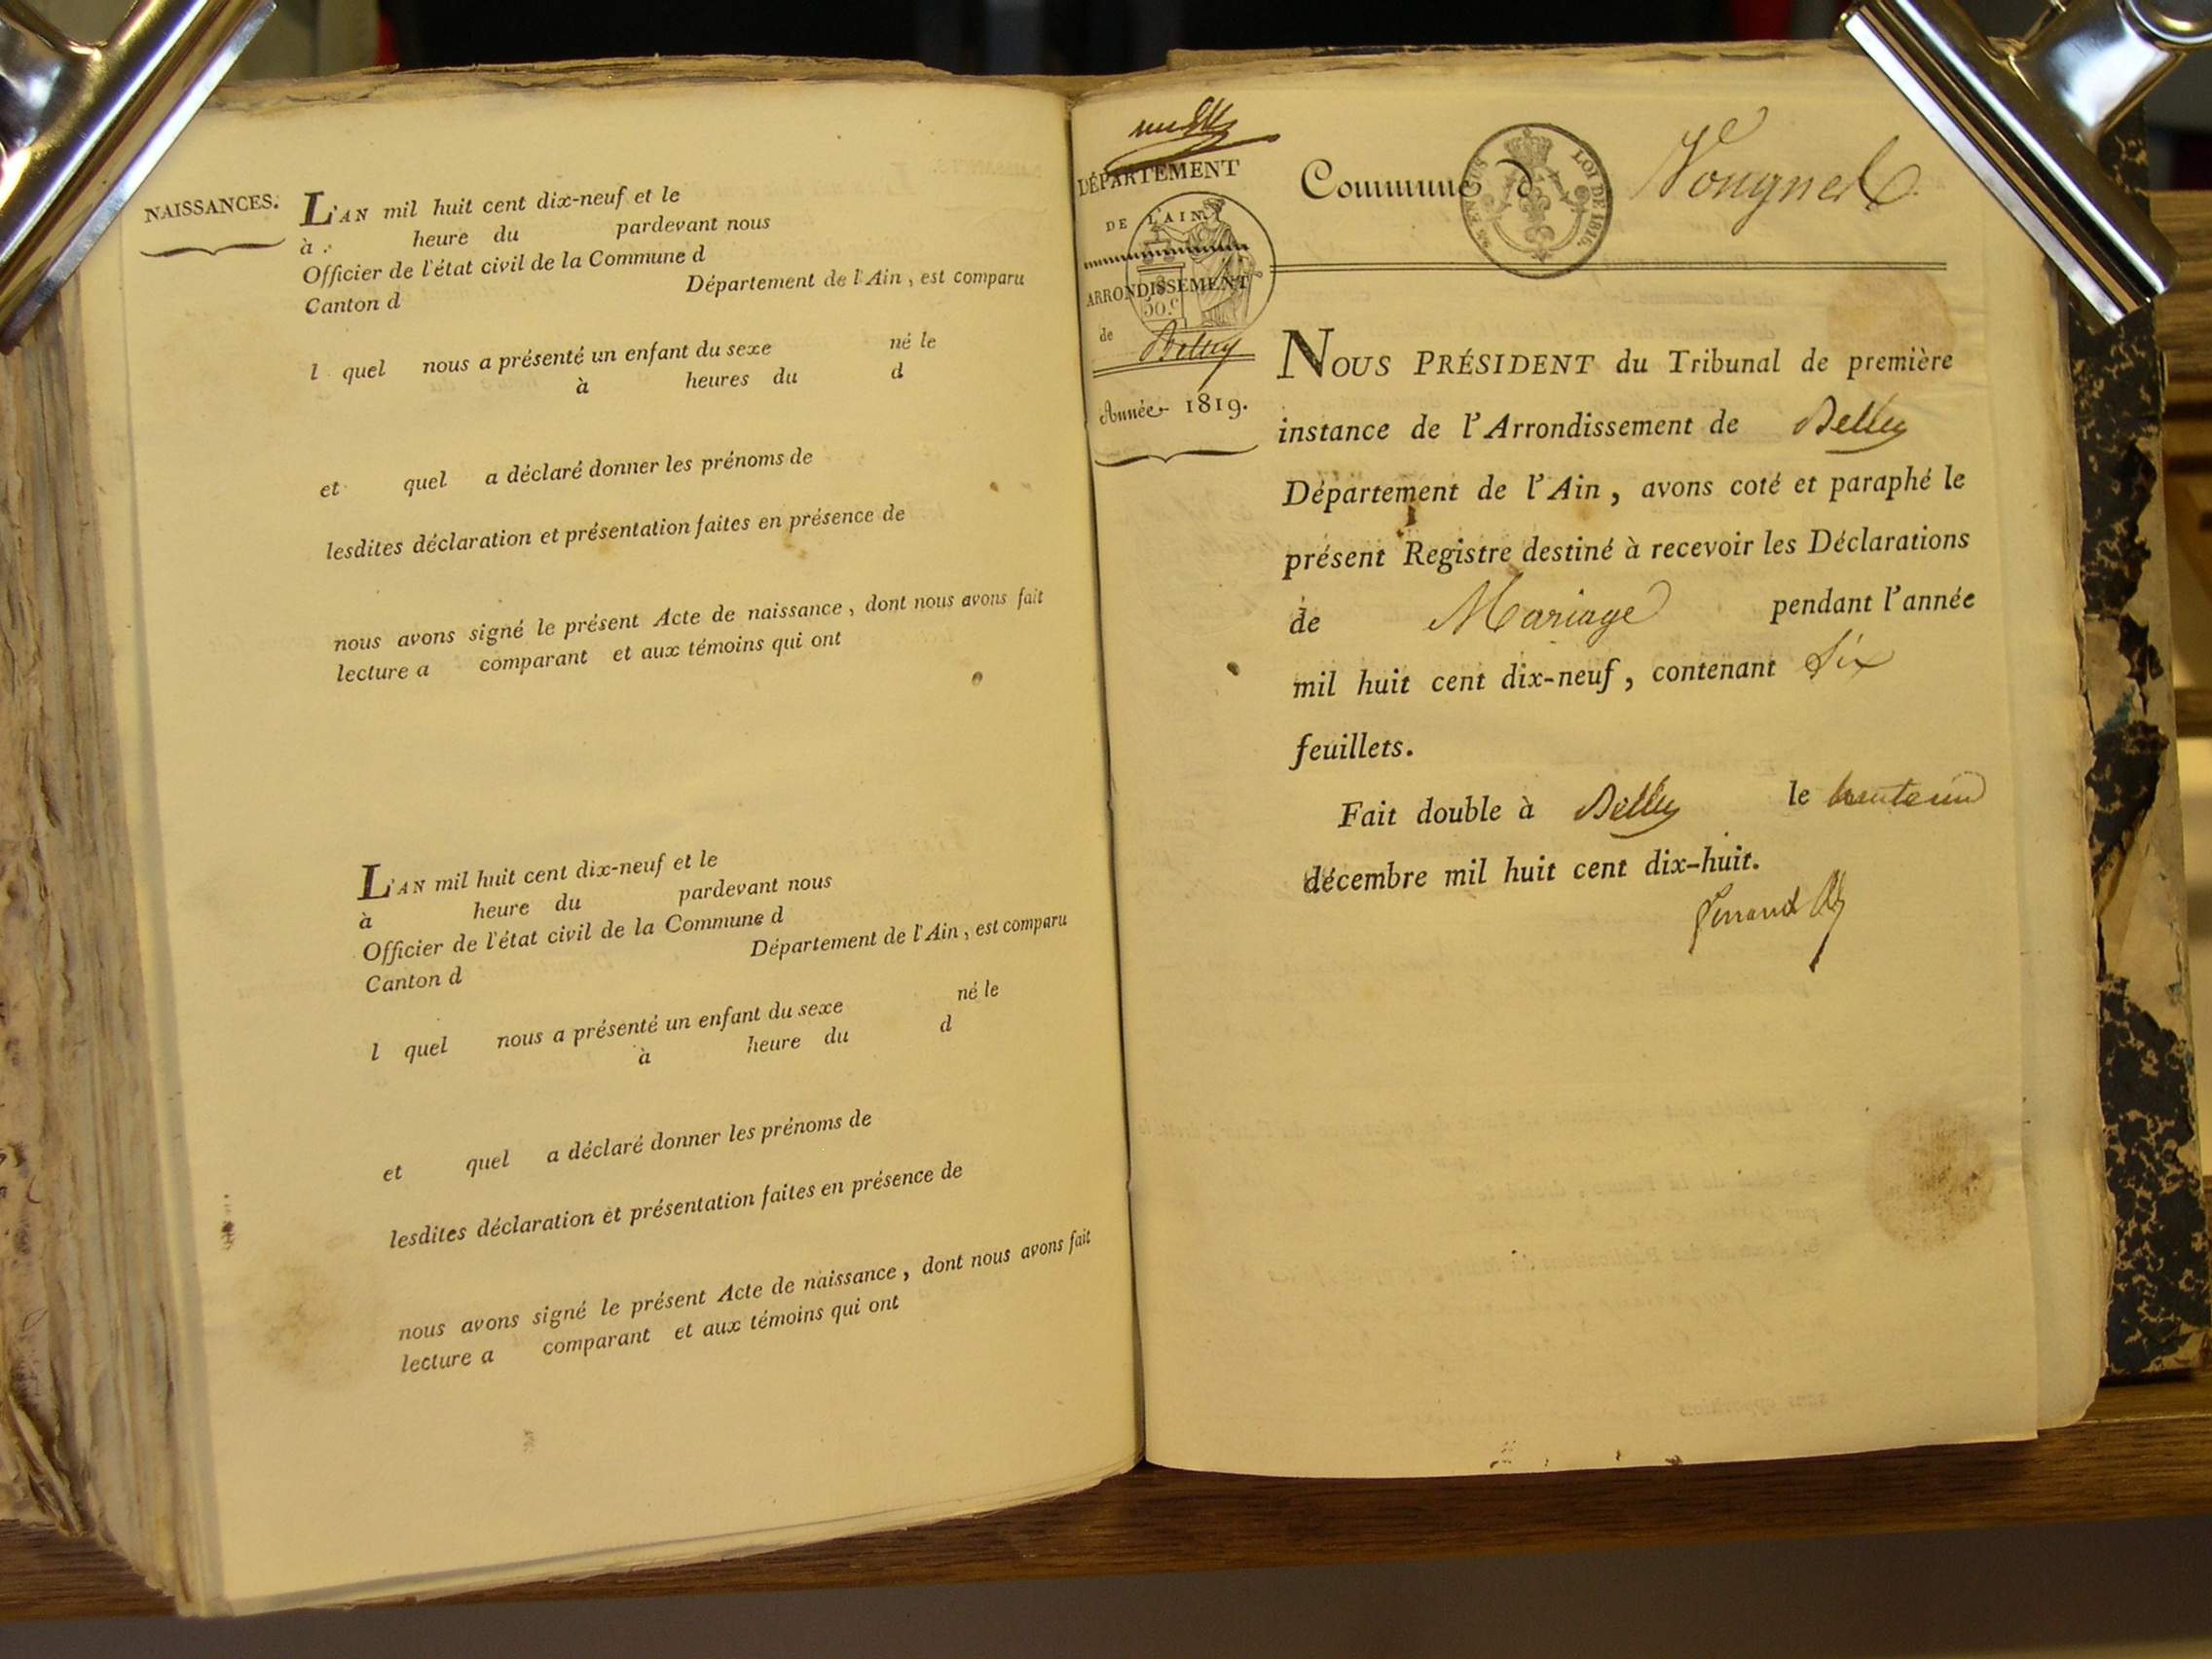 NAISSANCES.
L'AN mil huit cent dix-neuf et le
à heure du pardevant nous
Officier de l'état civil de la Commune d
Canton d Département de l'Ain, est comparu
l quel nous a présenté un enfant du sexe né le
à heures du d
et quel a déclaré donner les prénoms de
lesdites déclaration et présentation faites en présence de
nous avons signé le présent Acte de naissance, dont nous avons fait
lecture a comparant et aux témoins qui ont
L'AN mil huit cent dix-neuf et le
à heure du pardevant nous
Officier de l'état civil de la Commune d
Canton d Département de l'Ain, est comparu
l quel nous a présenté un enfant du sexe né le
à heure du d
et quel a déclaré donner les prénoms de
lesdites déclaration et présentation faites en présence de
nous avons signé le présent Acte de naissance, dont nous avons fait
lecture a comparant et aux témoins qui ont
DÉPARTEMENT
DE L'AIN
ARRONDISSEMENT
50.c
de Belley
Année 1819.
Commune d Vongnes
LOI DE 1816.
NOUS PRÉSIDENT du Tribunal de première
instance de l'Arrondissement de Belley
Département de l'Ain, avons coté et paraphé le
présent Registre destiné à recevoir les Déclarations
de Mariage pendant l'année
mil huit cent dix-neuf, contenant Six
feuillets.
Fait double à Belley le trente un
décembre mil huit cent dix-huit.